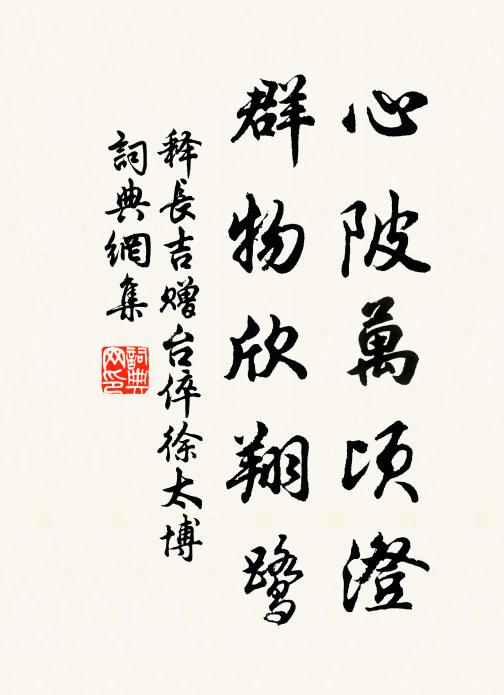 心陂萬頃澄
群物欣翔鷺
释長吉赠台倅徐太博
詞典網集
詞典網印